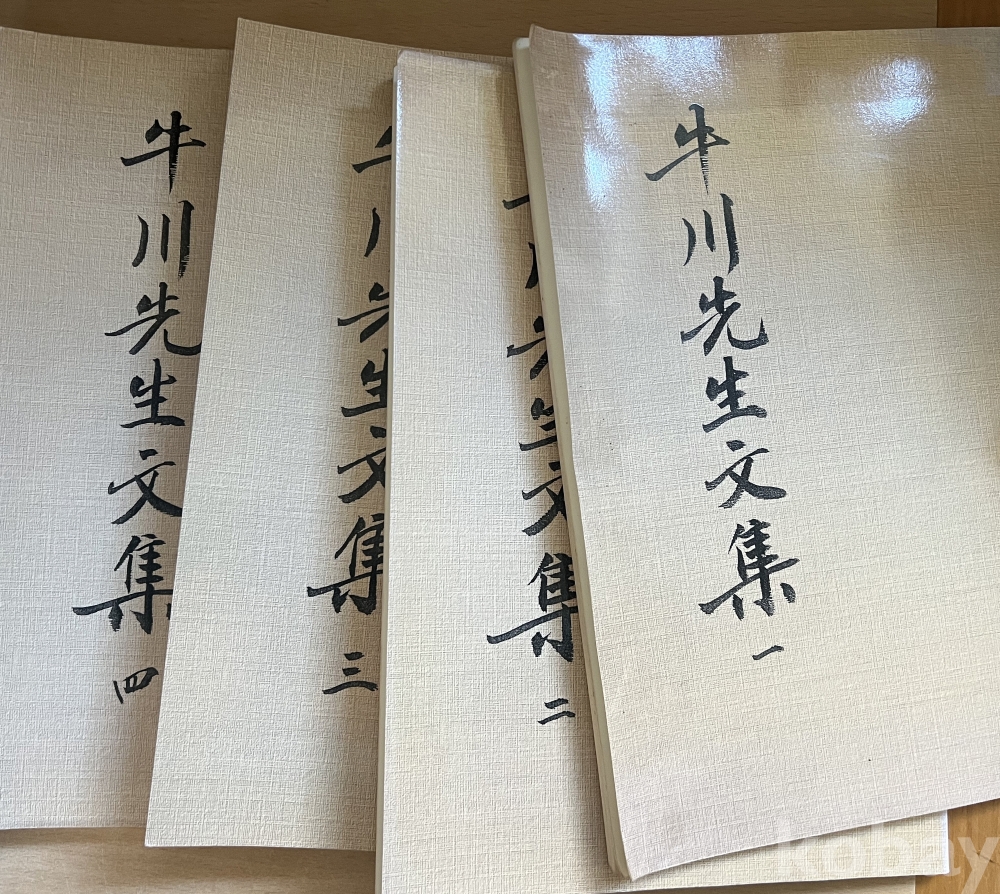 牛川先生文集 一
牛川先生文集 二
牛川先生文集 三
牛川先生文集 四
kobay